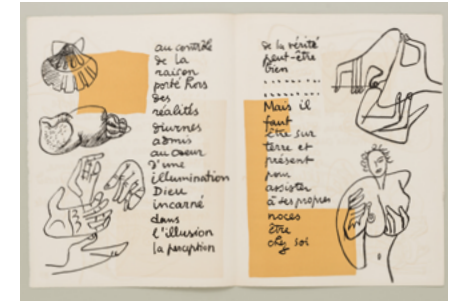 au contrôle
de la
raison
porté hors
des
réalités
diurnes
admis
au cœur
d'une
illumination
Dieu
incarné
dans
l'illusion
la perception
de la vérité
peut-être
bien
. . . . . . . .
. . . . . . . .
Mais il
faut
être sur
terre et
présent
pour
assister
à ses propres
noces
être
chez soi